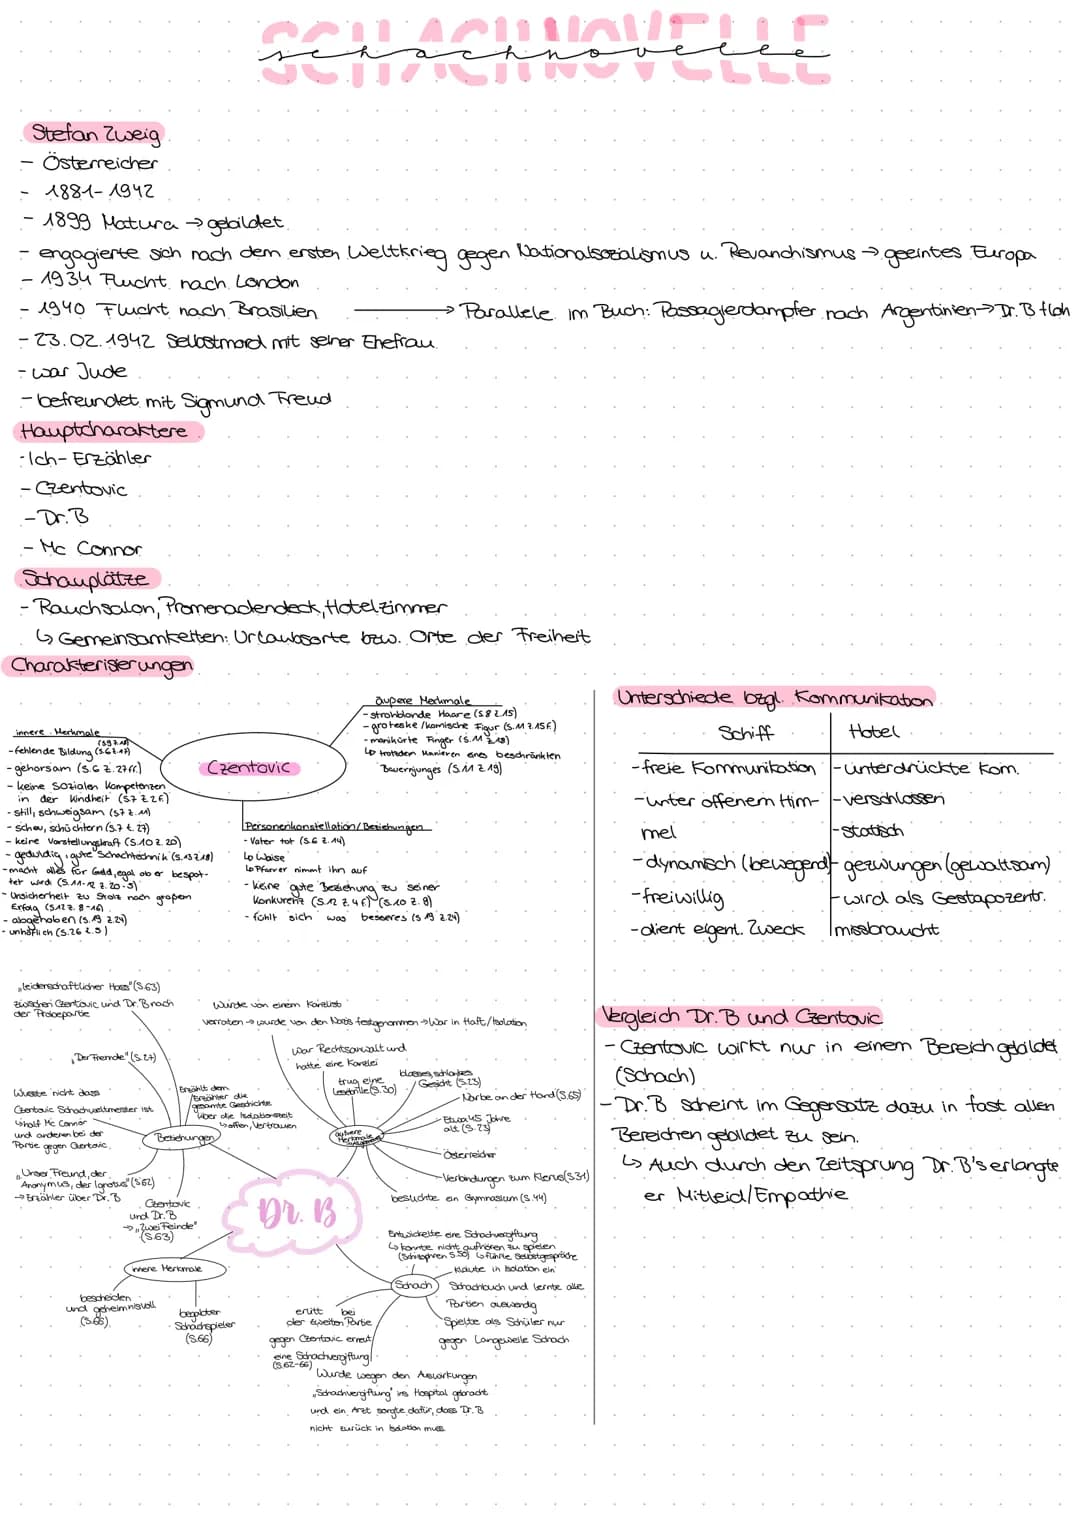 SCHACHNOVELLE
schachnovelle
Stefan Zweig
- Österreicher
- 1881-1942
- 1899 Matura → gebildet
- engagierte sich nach dem ersten Weltkrieg gegen Nationalsozialismus u. Revanchismus → geeintes Europa
- 1934 Flucht nach London
- 1940 Flucht nach Brasilien → Parallele im Buch: Passagierdampfer nach Argentinien → Dr. B floh
- 23.02.1942 Selbstmord mit seiner Ehefrau
- war Jude
- befreundet mit Sigmund Freud
Hauptcharaktere
- Ich-Erzähler
- Czentovic
- Dr. B
- Mc Connor
Schauplätze
- Rauchsalon, Promenadendeck, Hotelzimmer
↳ Gemeinsamkeiten: Urlaubsorte bzw. Orte der Freiheit
Charakterisierungen
Czentovic
innere Merkmale
- fehlende Bildung (S.6 Z.17)
(S9 Z.18)
- gehorsam (S.6 Z.27ff.)
- keine sozialen Kompetenzen
in der Kindheit (S7 Z 2f.)
- still, schweigsam (S7 Z.11)
- scheu, schüchtern (S.7 Z.27)
- keine Vorstellungskraft (S.10 Z.20)
- geduldig, gute Schachtechnik (S.13 Z 18)
- macht alles für Geld, egal ob er bespot-
tet wird (S.11-12 Z.20-5)
- Unsicherheit zu Stolz nach großem
Erfolg (S12 Z.8-16)
- abgehoben (S.19 Z.24)
- unhöflich (S.26 Z.5)
äußere Merkmale
- strohblonde Haare (S.8 Z.15)
- groteske/komische Figur (S.11 Z.15f.)
- manikürte Finger (S.11 Z.18)
↳ trotzdem Manieren eines beschränkten
Bauernjunges (S.11 Z 19)
Personenkonstellation/Beziehungen
- Vater tot (S.6 Z.14)
↳ Waise
↳ Pfarrer nimmt ihn auf
- keine gute Beziehung zu seiner
Konkurenz (S.12 Z 4f.) (S.10 Z.8)
- fühlt sich was besseres (S 19 Z 24)
Unterschiede bzgl. Kommunikation
Schiff
Hotel
- freie Kommunikation
- unterdrückte Kom.
- unter offenem Him-
mel
- verschlossen
- statisch
- dynamisch (bewegend)
- gezwungen (gewaltsam)
- freiwillig
- wird als Gestapozentr.
missbraucht
- dient eigent. Zweck
Vergleich Dr. B und Czentovic
- Czentovic wirkt nur in einem Bereich gebildet
(Schach)
- Dr. B scheint im Gegensatz dazu in fast allen
Bereichen gebildet zu sein.
↳ Auch durch den Zeitsprung Dr. B's erlangte
er Mitleid/Empathie
Dr. B
Beziehungen
„leidenschaftlicher Hass" (S.63)
zwischen Czentovic und Dr. B nach
der Probepartie
„Der Fremde" (S.27)
Wusste nicht dass
Czentovic Schachweltmeister ist
↳ half Mc Connor
und anderen bei der
Partie gegen Czentovic
Erzählt dem
Erzähler die
gesamte Geschichte
über die Isolationszeit
↳ offen, Vertrauen
„Unser Freund, der
Anonymus, der Ignotus" (S.62)
→ Erzähler über Dr. B
Czentovic
und Dr. B
→ „Zwei Feinde"
(S.63)
innere Merkmale
bescheiden
und geheimnisvoll
(S.66)
begabter
Schachspieler
(S.66)
äußere
Merkmale
Wurde von einem Kanzlist
verraten → wurde von den Nazis festgenommen → War in Haft/Isolation
War Rechtsanwalt und
hatte eine Kanzlei
trug eine
Lesebrille (S.30)
blasses, schlankes
Gesicht (S.23)
Narbe an der Hand (S.65)
Etwa 45 Jahre
alt (S.23)
Österreicher
Verbindungen zum Klerus (S.31)
besuchte ein Gymnasium (S.44)
Schach
Entwickelte eine Schachvergiftung
↳ konnte nicht aufhören zu spielen
(Schizophren S.50) ↳ führte Selbstgespräche
Klaute in Isolation ein
Schachbuch und lernte alle
Partien auswendig
Spielte als Schüler nur
gegen Langeweile Schach
erlitt bei
der zweiten Partie
gegen Czentovic erneut
eine Schachvergiftung
(S.62-66)
Wurde wegen den Auswirkungen
„Schachvergiftung" ins Hospital gebracht
und ein Arzt sorgte dafür, dass Dr. B
nicht zurück in Isolation muss